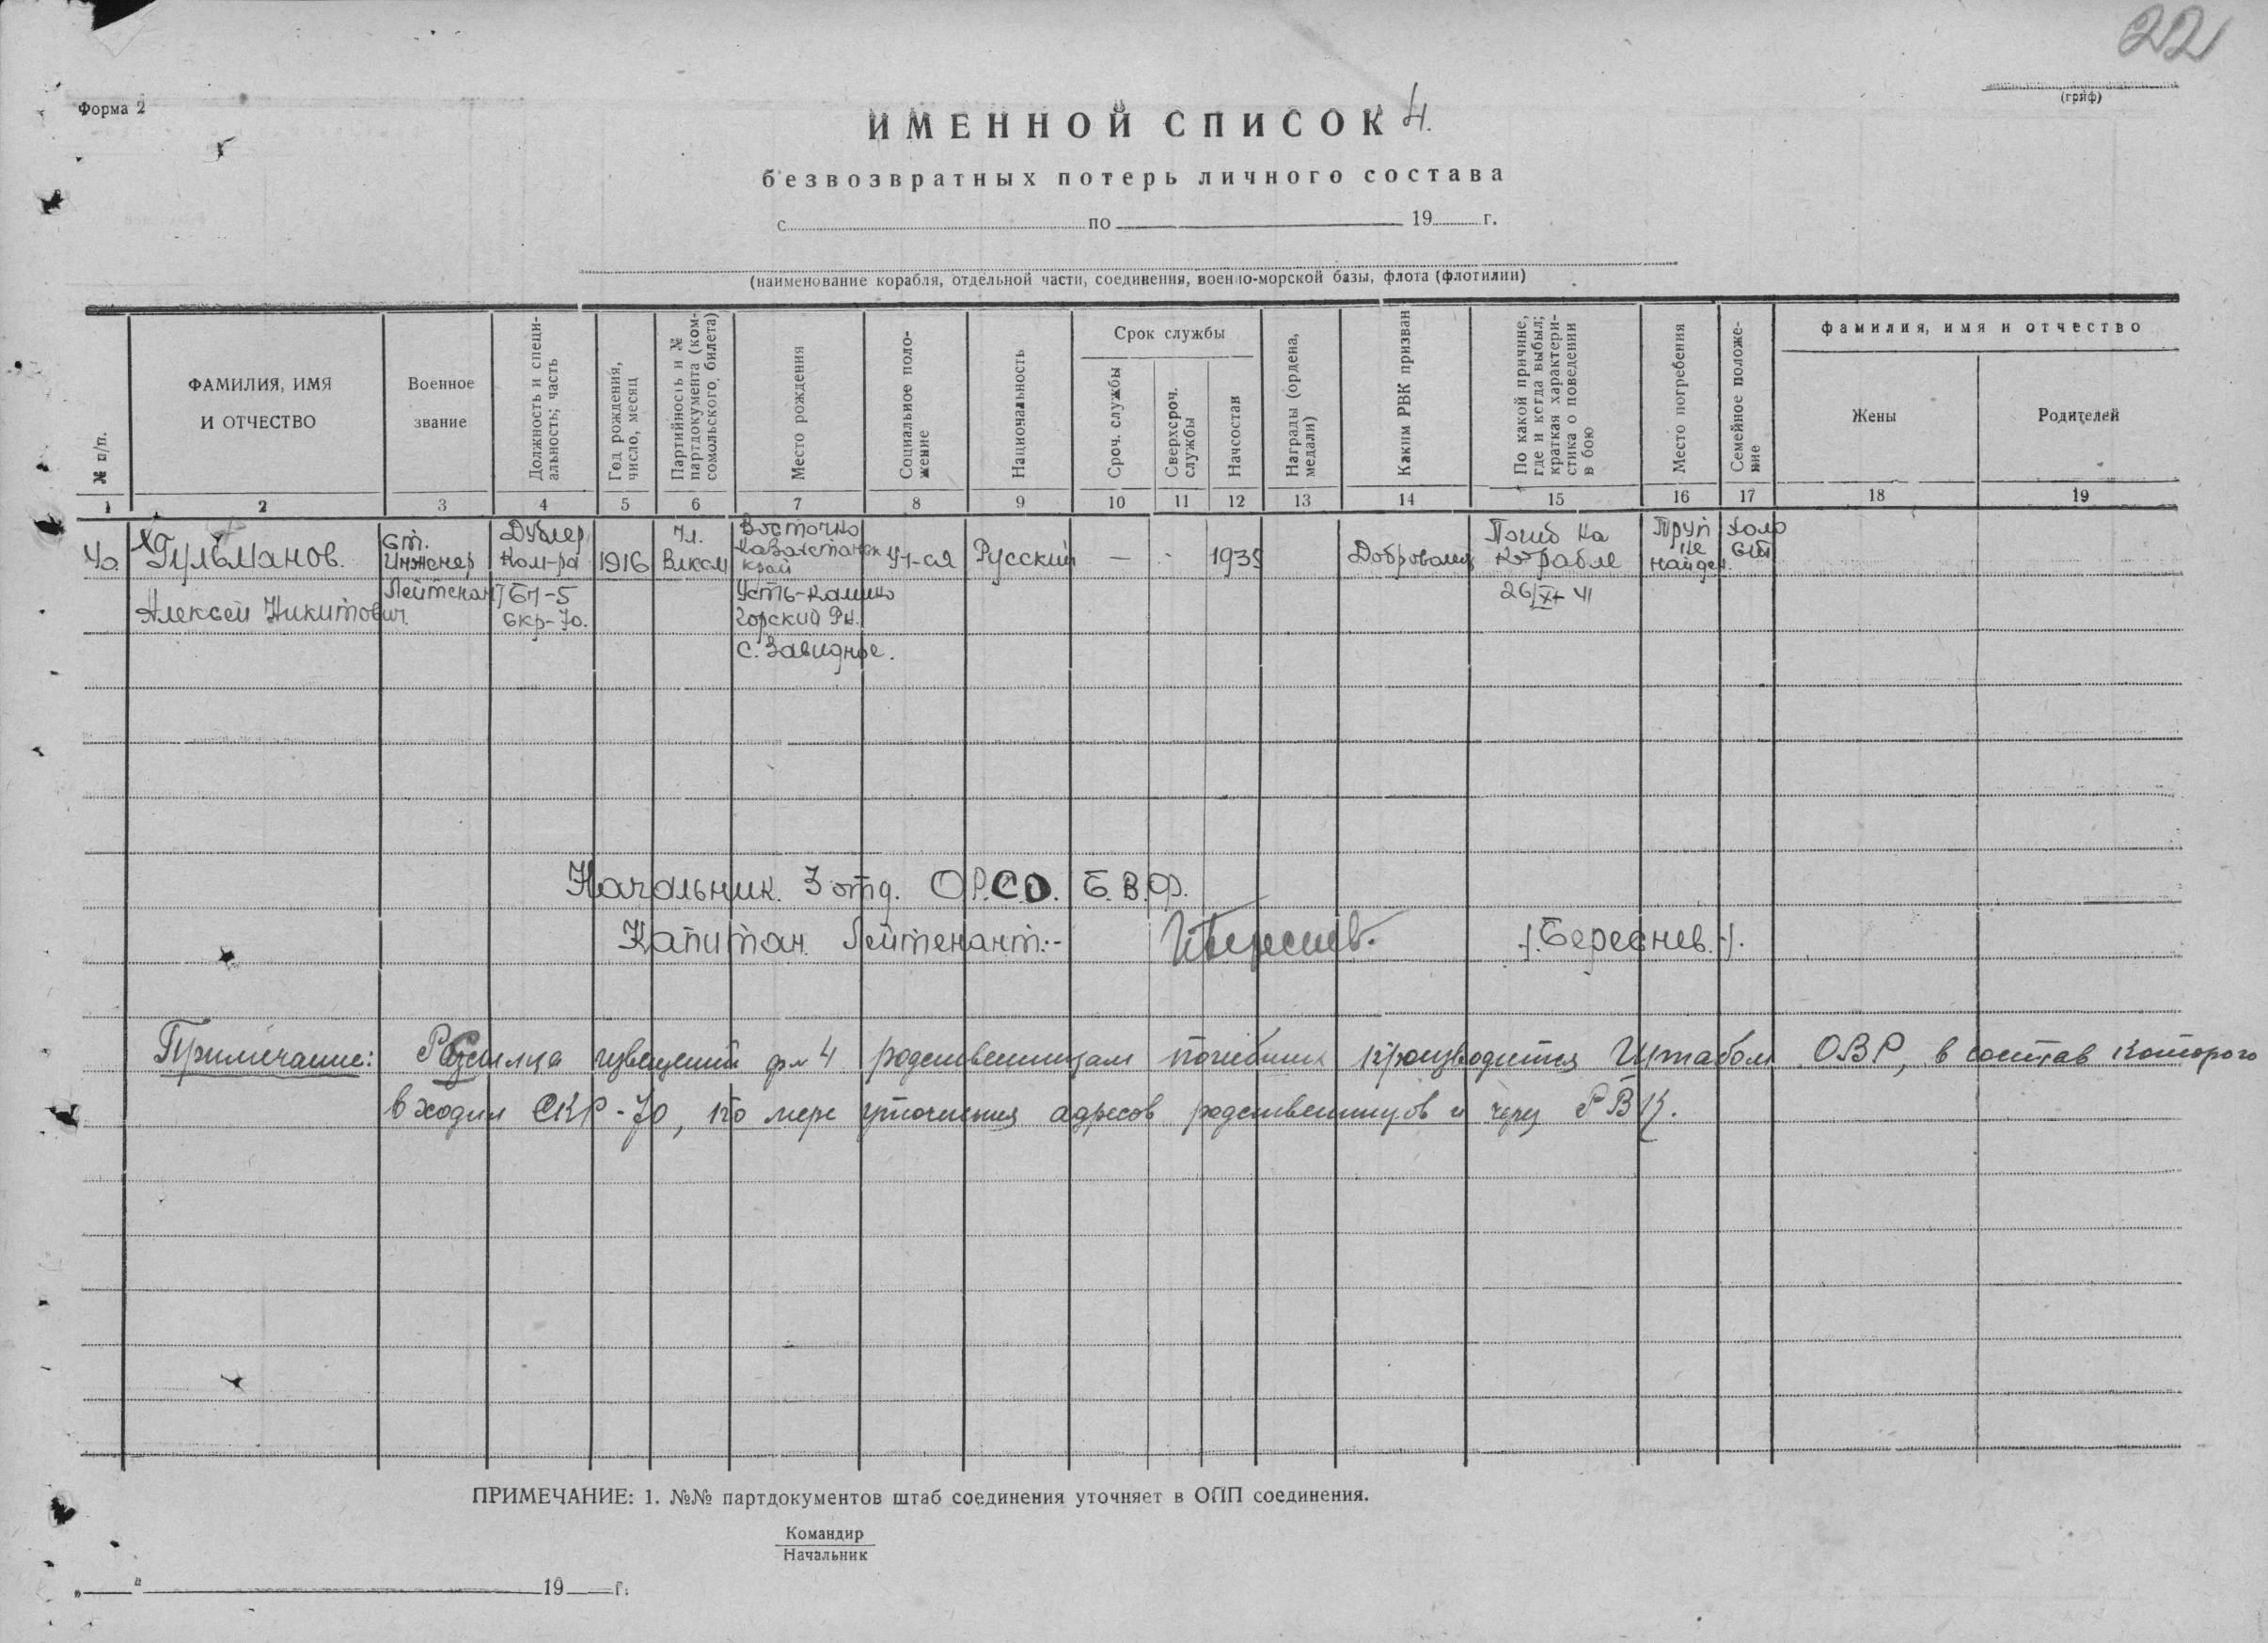 22
Форма 2
(гриф)
ИМЕННОЙ СПИСОК 4.
безвозвратных потерь личного состава
с по 19 г.
(наименование корабля, отдельной части, соединения, военно-морской базы, флота (флотилии)
№ п/п.
ФАМИЛИЯ, ИМЯ
И ОТЧЕСТВО
Военное
звание
Должность и специ-
альность; часть
Год рождения,
число, месяц
Партийность и №
партдокумента (ком-
сомольского, билета)
Место рождения
Социальное поло-
жение
Национальность
Срок службы
Сроч. службы
Сверхсроч.
службы
Начсостав
Награды (ордена,
медали)
Каким РВК призван
По какой причине,
где и когда выбыл;
краткая характери-
стика о поведении
в бою
Место погребения
Семейное положе-
ние
фамилия, имя и отчество
Жены
Родителей
1 2 3 4 5 6 7 8 9 10 11 12 13 14 15 16 17 18 19
40.
Гульманов.
Алексей Никитович.
Ст.
Инженер
Лейтенант
Дублер
Ком-ра
БЧ-5
Скр-70.
1916
Чл.
Влксм
Восточно
Казахстанск
край
Усть-Камено
горский Рн.
с. Завидное.
Уч-ся
Русский
— - 1935
Доброволец
Погиб на
корабле
26/XI 41
Труп
не
найден.
Холо
ст
Начальник 3 отд. О.Р.С.О. Б.В.Ф.
Капитан Лейтенант:- /.Береснев./.
Примечание: Рассылка извещений ф-ы 4 родственникам погибших производится Штабом ОВР, в состав которого
входил СКР-70, по мере уточнения адресов родственников и через РВК.
ПРИМЕЧАНИЕ: 1. №№ партдокументов штаб соединения уточняет в ОПП соединения.
Командир
Начальник
„ " 19 г.